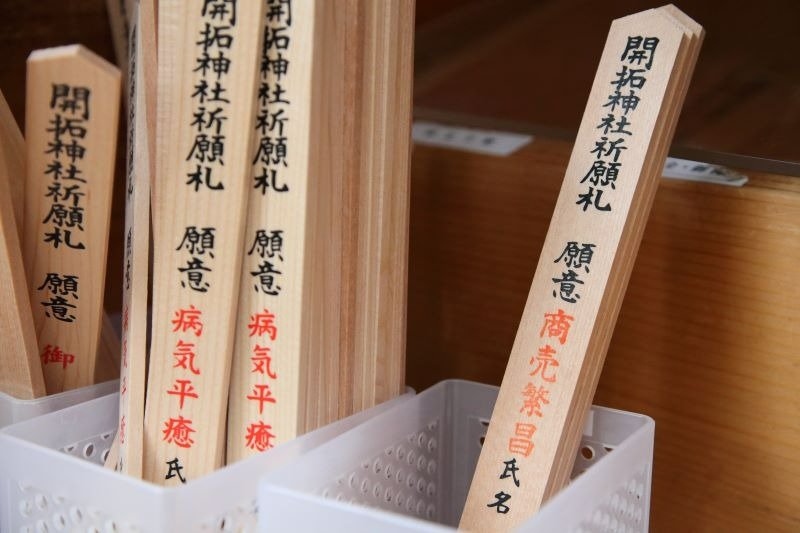 開拓神社祈願札 願意 商売繁昌 氏名
開拓神社祈願札 願意 病気平癒
開拓神社祈願札 願意 病気平癒 氏
開拓神社祈願札 願意 御